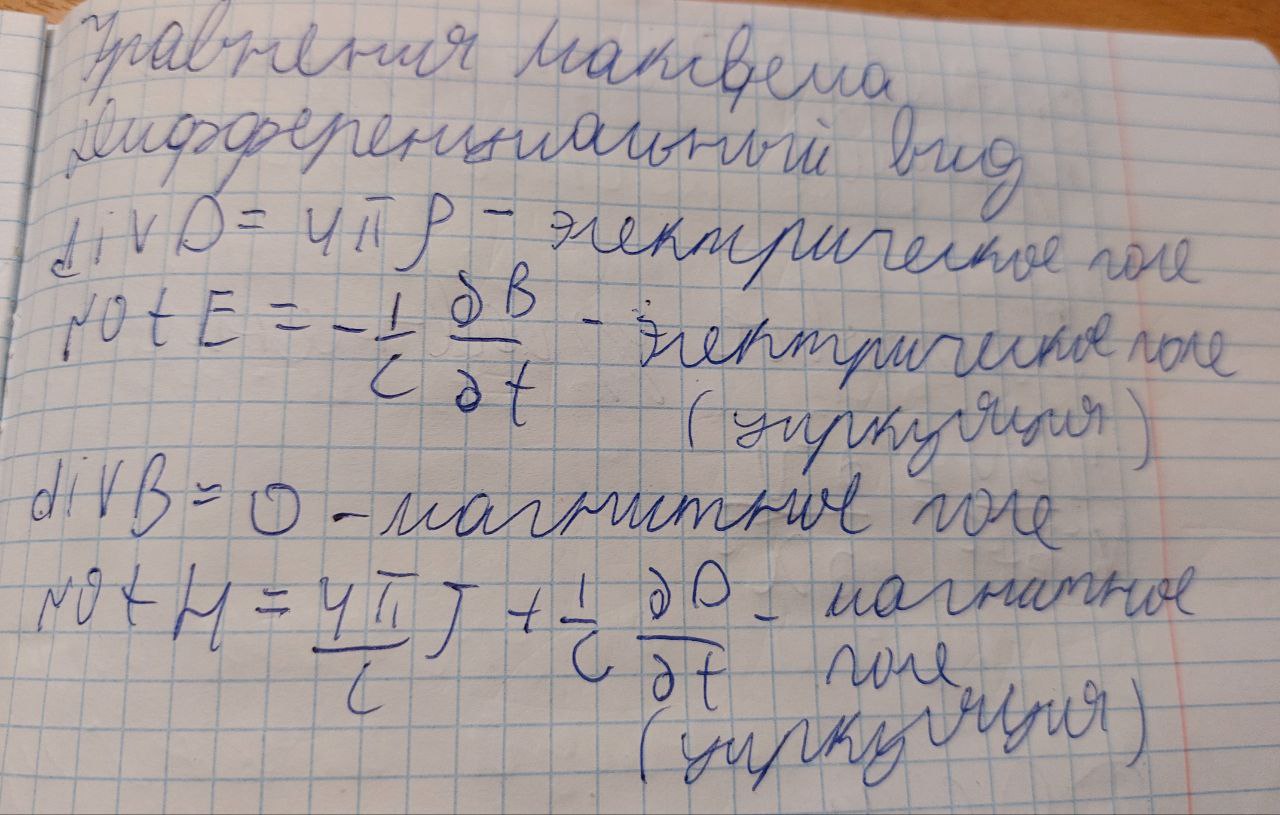 Уравнения Максвелла
Дифференциальный вид
div D = 4π ρ - электрическое поле
rot E = - 1/c ∂B/∂t - электрическое поле
(циркуляция)
div B = 0 - магнитное поле
rot H = 4π/c j + 1/c ∂D/∂t - магнитное
поле
(циркуляция)